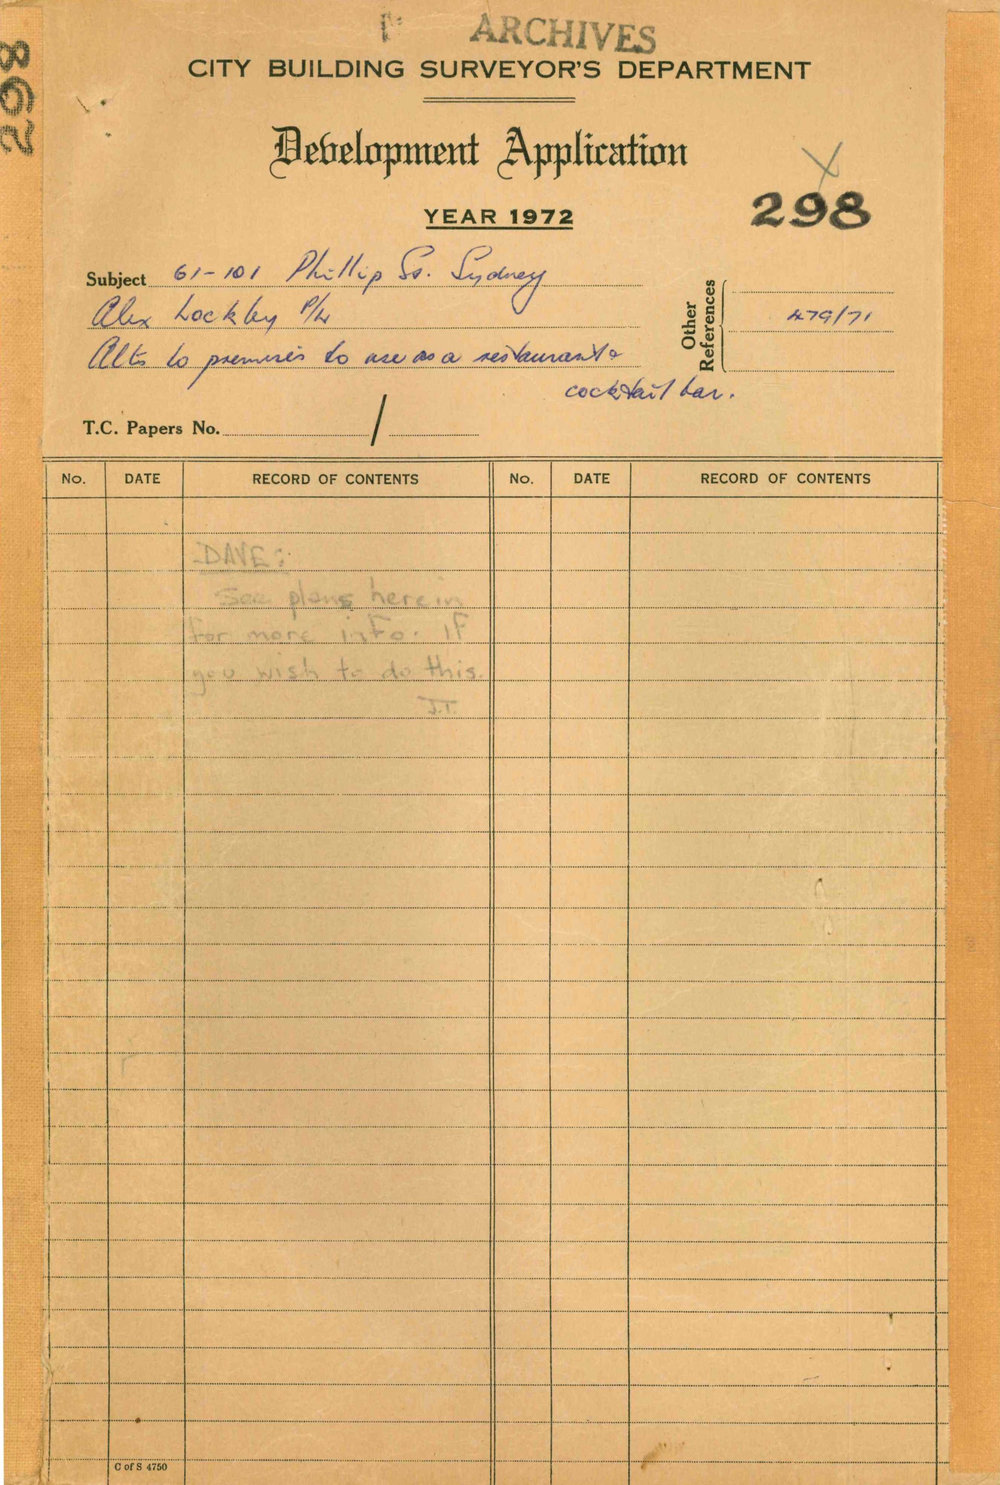 ARCHIVES
CITY BUILDING SURVEYOR'S DEPARTMENT
298
Development Application
YEAR 1972
298
Subject 61-101 Phillip St. Sydney
Alex Lockby P/L
Alts to premises to use as a restaurant &
cocktail bar.
Other References
479/71
T.C. Papers No. /
No. DATE RECORD OF CONTENTS No. DATE RECORD OF CONTENTS
DAVE:
See plans herein
for more info. if
you wish to do this.
J.T.
C of S 4750